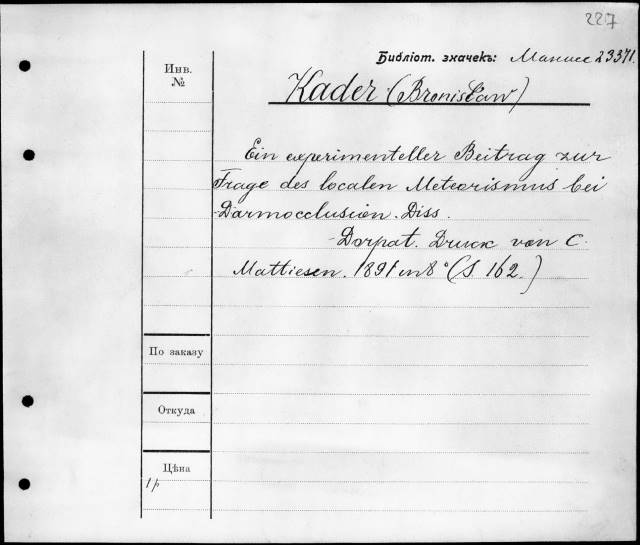 227
Библіот. значекъ: Манис 23371.
Инв.
№
Kader (Bronisław)
Ein experimenteller Beitrag zur
Frage des localen Meteorismus bei
Darmocclusion. Diss.
Dorpat. Druck von C.
Mattiesen. 1891 in 8° (S. 162.)
По заказу
Откуда
Цѣна
1 р